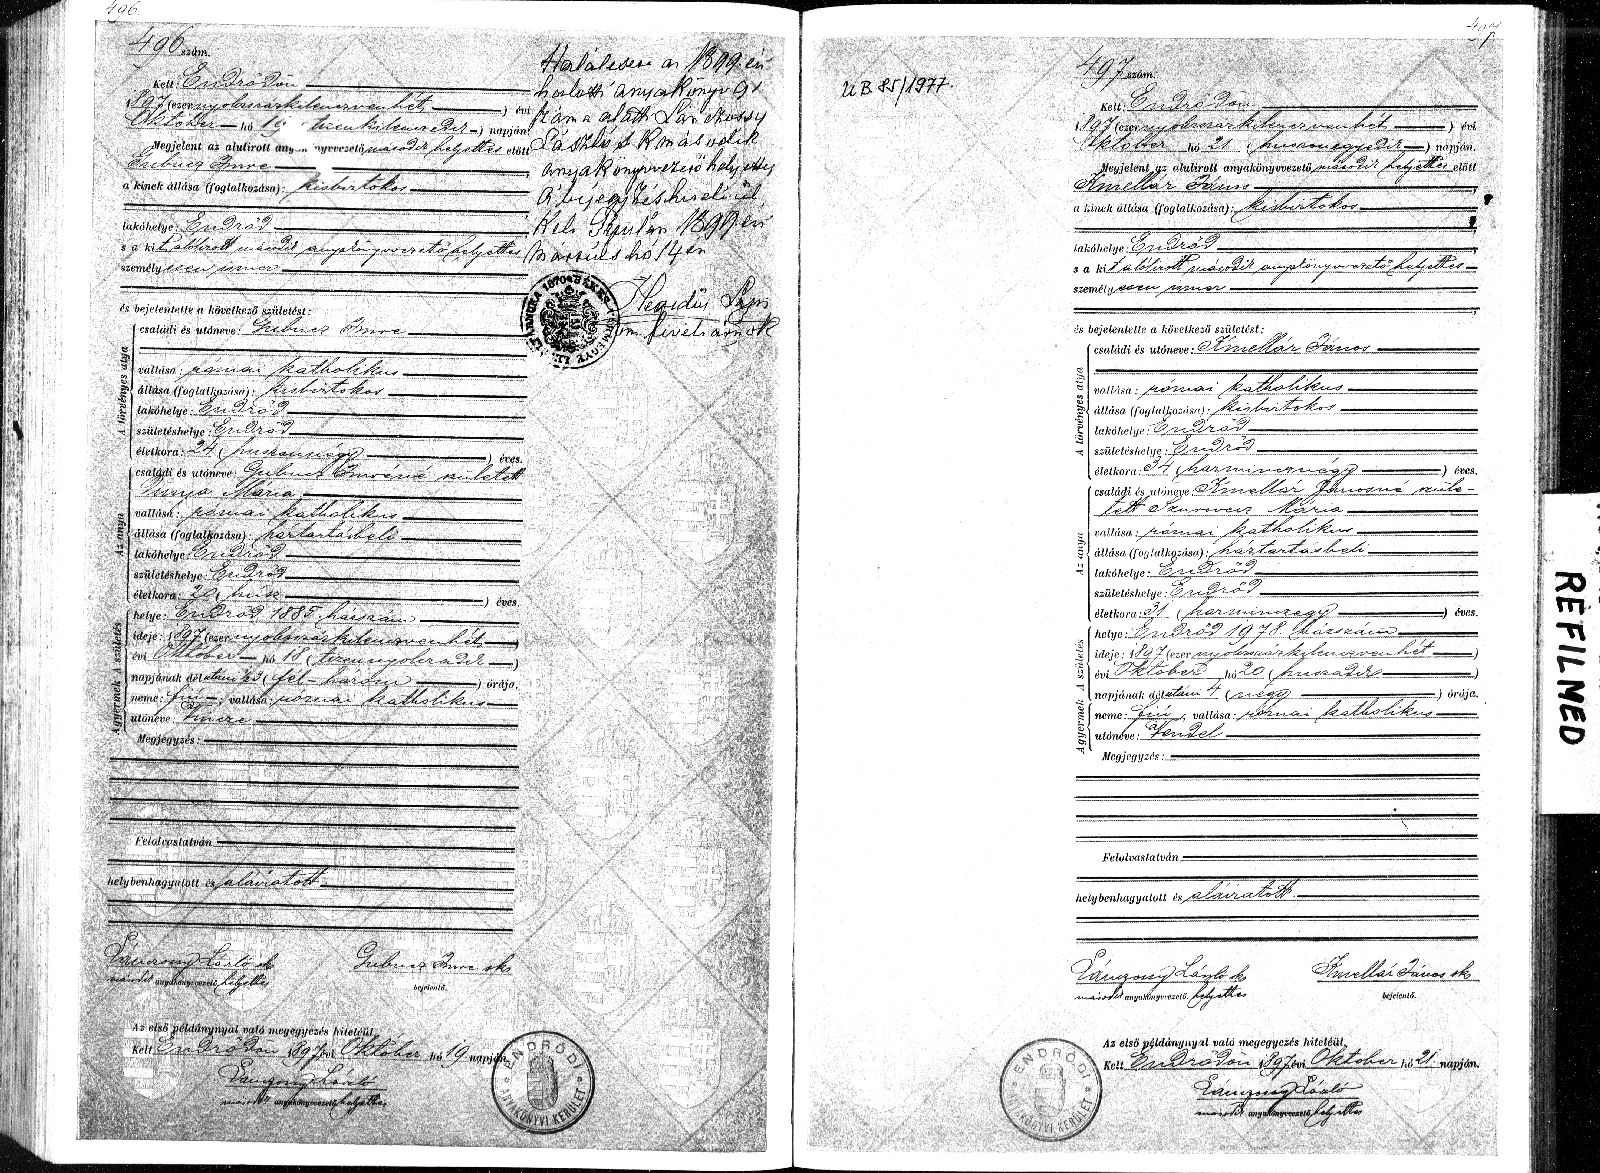 496
496 szám.
Kelt: Endrődön
1897 (ezernyolcszázkilenczvenhét) évi
Október hó 19 tizenkilenczedik napján.
Megjelent az alulirott any nyvezető második helyettes előtt
Gubucz Imre
a kinek állása (foglalkozása): kisbirtokos
lakóhelye: Endrőd
s a kit alólirott második anyakönyvvezető helyettes
személyesen ismer
és bejelentette a következő születést:
A törvényes atya
családi és utóneve: Gubucz Imre
vallása: római katholikus
állása (foglalkozása): kisbirtokos
lakóhelye: Endrőd
születéshelye: Endrőd
életkora: 24 (huszonnégy) éves.
Az anya
családi és utóneve: Gubucz Imréné született
Mária
vallása: római katholikus
állása (foglalkozása): háztartásbeli
lakóhelye: Endrőd
születéshelye: Endrőd
életkora: 20 (húsz) éves.
A gyermek A születés
helye: Endrőd 1885 házszám
ideje: 1897 (ezernyolcszázkilenczvenhét)
évi Október hó 18 (tizennyolczadik)
napjának délutáni ½3 (fél-három) órája.
neme: fiú, vallása: római katholikus
utóneve: Imre
Megjegyzés:
Felolvastatván
helybenhagyatott és aláiratott
László sk
második anyakönyvvezető helyettes
Gubucz Imre sk
bejelentő.
Az első példánynyal való megegyezés hiteléül,
Kelt Endrődön 1897 évi Október hó 19 napján.
László
második anyakönyvvezető helyettes
ENDRŐDI ANYAKÖNYVI KERÜLET
Halálesete az 1899 évi
halotti anyakönyv 91
szám alatt
László sk második
anyakönyvvezető helyettes
A bejegyzés hiteléül,
Kelt Gyulán 1899 évi
március hó 14 én
Hegedűs
vm. főlevéltárnok
497
UB 85/1977.
497 szám.
Kelt: Endrődön
1897 (ezernyolcszázkilenczvenhét) évi
Október hó 21 (huszonegyedik) napján.
Megjelent az alulirott anyakönyvvezető második helyettes előtt
Kmellár János
a kinek állása (foglalkozása): kisbirtokos
lakóhelye: Endrőd
s a kit alólirott második anyakönyvvezető helyettes
személyesen ismer
és bejelentette a következő születést:
A törvényes atya
családi és utóneve: Kmellár János
vallása: római katholikus
állása (foglalkozása): kisbirtokos
lakóhelye: Endrőd
születéshelye: Endrőd
életkora: 34 (harmincznégy) éves.
Az anya
családi és utóneve: Kmellár Jánosné szüle-
tett Mária
vallása: római katholikus
állása (foglalkozása): háztartásbeli
lakóhelye: Endrőd
születéshelye: Endrőd
életkora: 31 (harminczegy) éves.
A gyermek A születés
helye: Endrőd 1978 házszám
ideje: 1897 (ezernyolcszázkilenczvenhét)
évi Október hó 20 (huszadik)
napjának délutáni 4 (négy) órája.
neme: fiú, vallása: római katholikus
utóneve: Vendel
Megjegyzés:
Felolvastatván
helybenhagyatott és aláiratott
László sk
második anyakönyvvezető helyettes
Kmellár János sk
bejelentő.
Az első példánynyal való megegyezés hiteléül,
Kelt Endrődön 1897 évi Október hó 21 napján.
László
második anyakönyvvezető helyettes
ENDRŐDI ANYAKÖNYVI KERÜLET
REFILMED